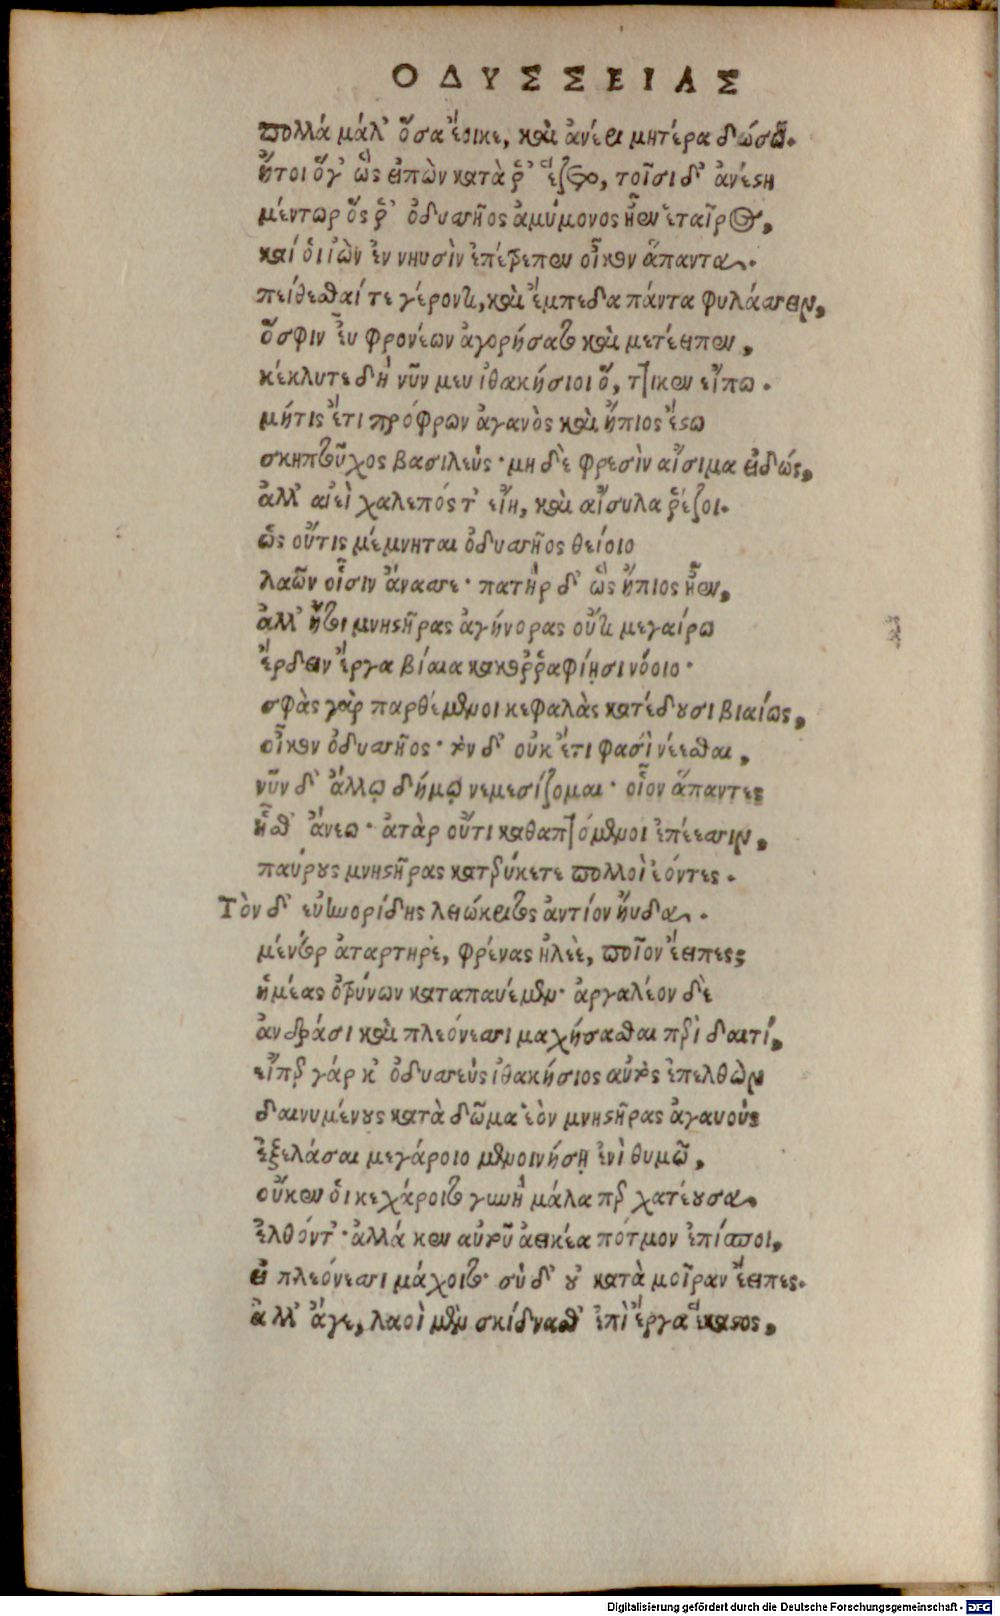 ΟΔΥΣΣΕΙΑΣ
πολλά μάλ' ὅσα ἔοικε, καὶ ἀνέρι μητέρα δώσω.
ἤτοι ὅγ' ὣς εἰπὼν κατὰ ῥ' ἕζετο, τοῖσι δ' ἀνέστη
μέντωρ ὅς ῥ' ὀδυσσῆος ἀμύμονος ἦεν ἑταῖρος,
καί οἱ ἰὼν ἐν νηυσὶν ἐπέτρεπεν οἶκον ἅπαντα.
πείθεσθαί τε γέροντι, καὶ ἔμπεδα πάντα φυλάσσειν,
ὅσφιν ἐὺ φρονέων ἀγορήσατο καὶ μετέειπεν,
κέκλυτε δὴ νῦν μευ ἰθακήσιοι ὅ, ττικεν εἴπω.
μήτις ἔτι πρόφρων ἀγανὸς καὶ ἤπιος ἔστω
σκηπτοῦχος βασιλεύς· μηδὲ φρεσὶν αἴσιμα εἰδώς,
ἀλλ' αἰεὶ χαλεπός τ' εἴη, καὶ αἴσυλα ῥέζοι.
ὡς οὔτις μέμνηται ὀδυσσῆος θείοιο
λαῶν οἷσιν ἄνασσε· πατὴρ δ' ὣς ἤπιος ἦεν,
ἀλλ' ἤτοι μνηστῆρας ἀγήνορας οὔτι μεγαίρω
ἔρδειν ἔργα βίαια κακοῤῥαφίῃσι νόοιο·
σφὰς γὰρ παρθέμενοι κεφαλὰς κατέδουσι βιαίως,
οἶκον ὀδυσσῆος· τὸν δ' οὐκ ἔτι φασὶ νέεσθαι,
νῦν δ' ἄλλῳ δήμῳ νεμεσίζομαι· οἷον ἅπαντες
ἧσθ' ἄνεω· ἀτὰρ οὔτι καθαπτόμενοι ἐπέεσσιν,
παύρους μνηστῆρας κατερύκετε πολλοὶ ἐόντες.
Τὸν δ' εὐηνορίδης λειώκριτος ἀντίον ηὔδα.
μέντορ ἀταρτηρὲ, φρένας ἠλεὲ, ποῖον ἔειπες;
ἡμέας ὀτρύνων καταπαυέμεν· ἀργαλέον δὲ
ἀνδράσι καὶ πλεόνεσσι μαχήσασθαι περὶ δαιτί,
εἴπερ γάρ κ' ὀδυσσεὺς ἰθακήσιος αὐτὸς ἐπελθὼν
δαινυμένους κατὰ δῶμα ἑὸν μνηστῆρας ἀγαυοὺς
ἐξελάσαι μεγάροιο μενοινήσῃ ἐνὶ θυμῶ,
οὔκεν οἱ κεχάροιτο γυνὴ μάλα περ χατέουσα.
ἐλθόντ'· ἀλλά κεν αὐτοῦ ἀεικέα πότμον ἐπίσποι,
εἰ πλεόνεσσι μάχοιτο· σὺ δ' οὐ κατὰ μοῖραν ἔειπες.
ἀλλ' ἄγε, λαοὶ μὲν σκίδνασθ' ἐπὶ ἔργα ἕκαστος,
Digitalisierung gefördert durch die Deutsche Forschungsgemeinschaft - DFG